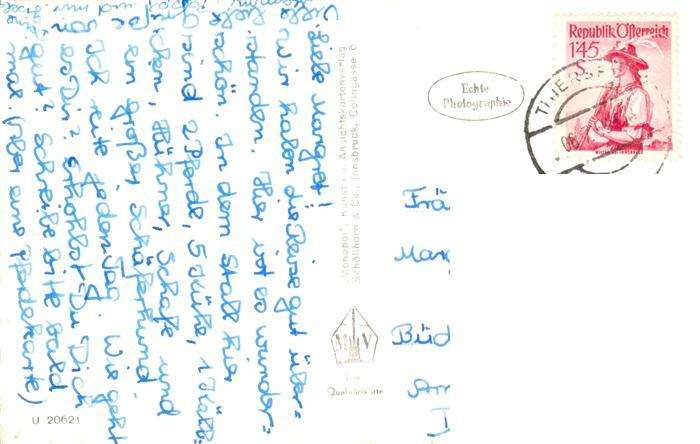 Liebe Margret!
Wir haben die Reise gut über=
standen. Hier ist es wunder=
schön. In dem Stall hier
sind 2 Pferde, 5 Kühe, 1 Kälb=
chen, Hühner, Schafe und
ein großer Schäferhund
Ich reite jeden Tag. Wie geht
es Dir? Erholst Du Dich
gut? Schreibe bitte bald
mal. (Aber eine Pferdekarte)
"Monopol", Kunst- u. Ansichtskartenverlag
Schöllhorn & Co., Innsbruck, Colingasse
M V
U 20621
Echte
Photographie
Republik Österreich
1'45 S
THIERS
Frä
Mar
Büd